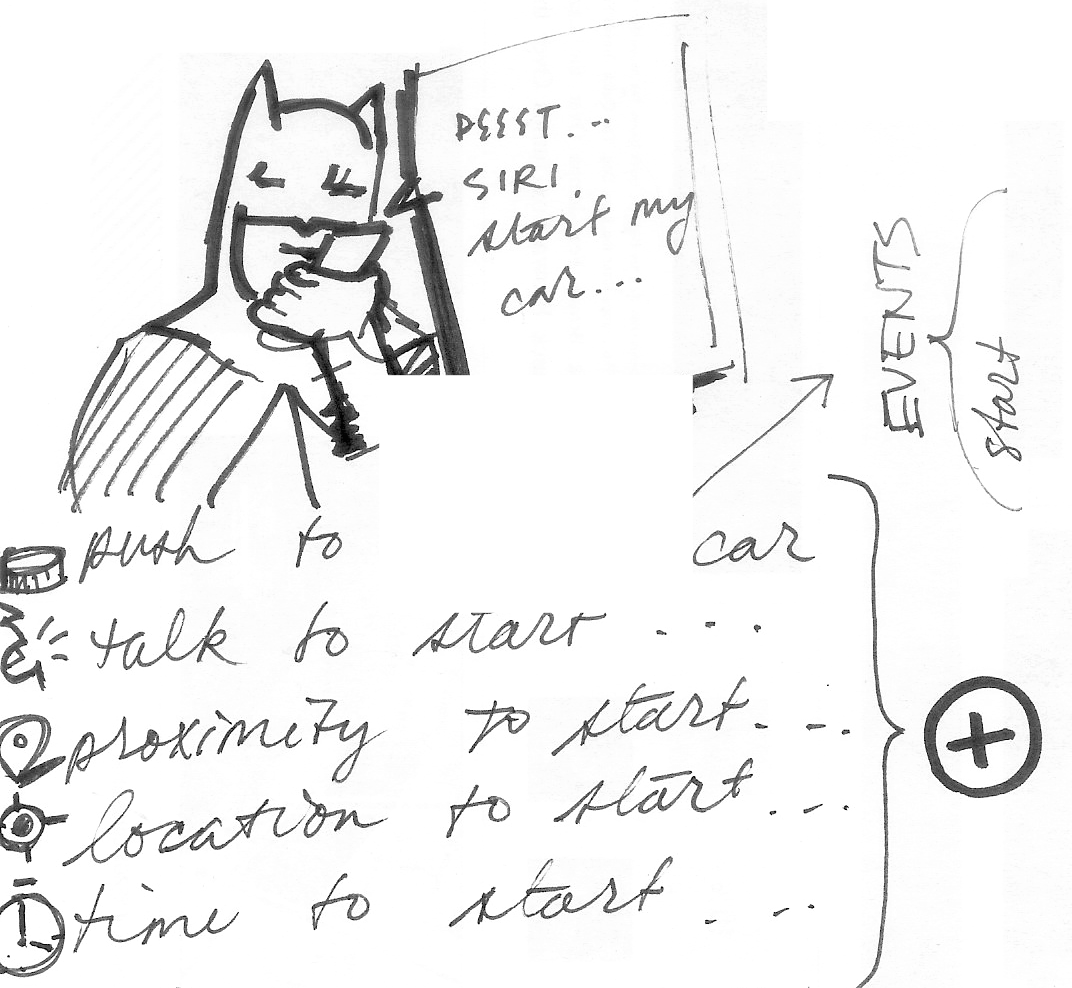 PSSST...
SIRI.
start my
car...
EVENTS
start
push to car
talk to start ...
proximity to start...
location to start...
time to start ...